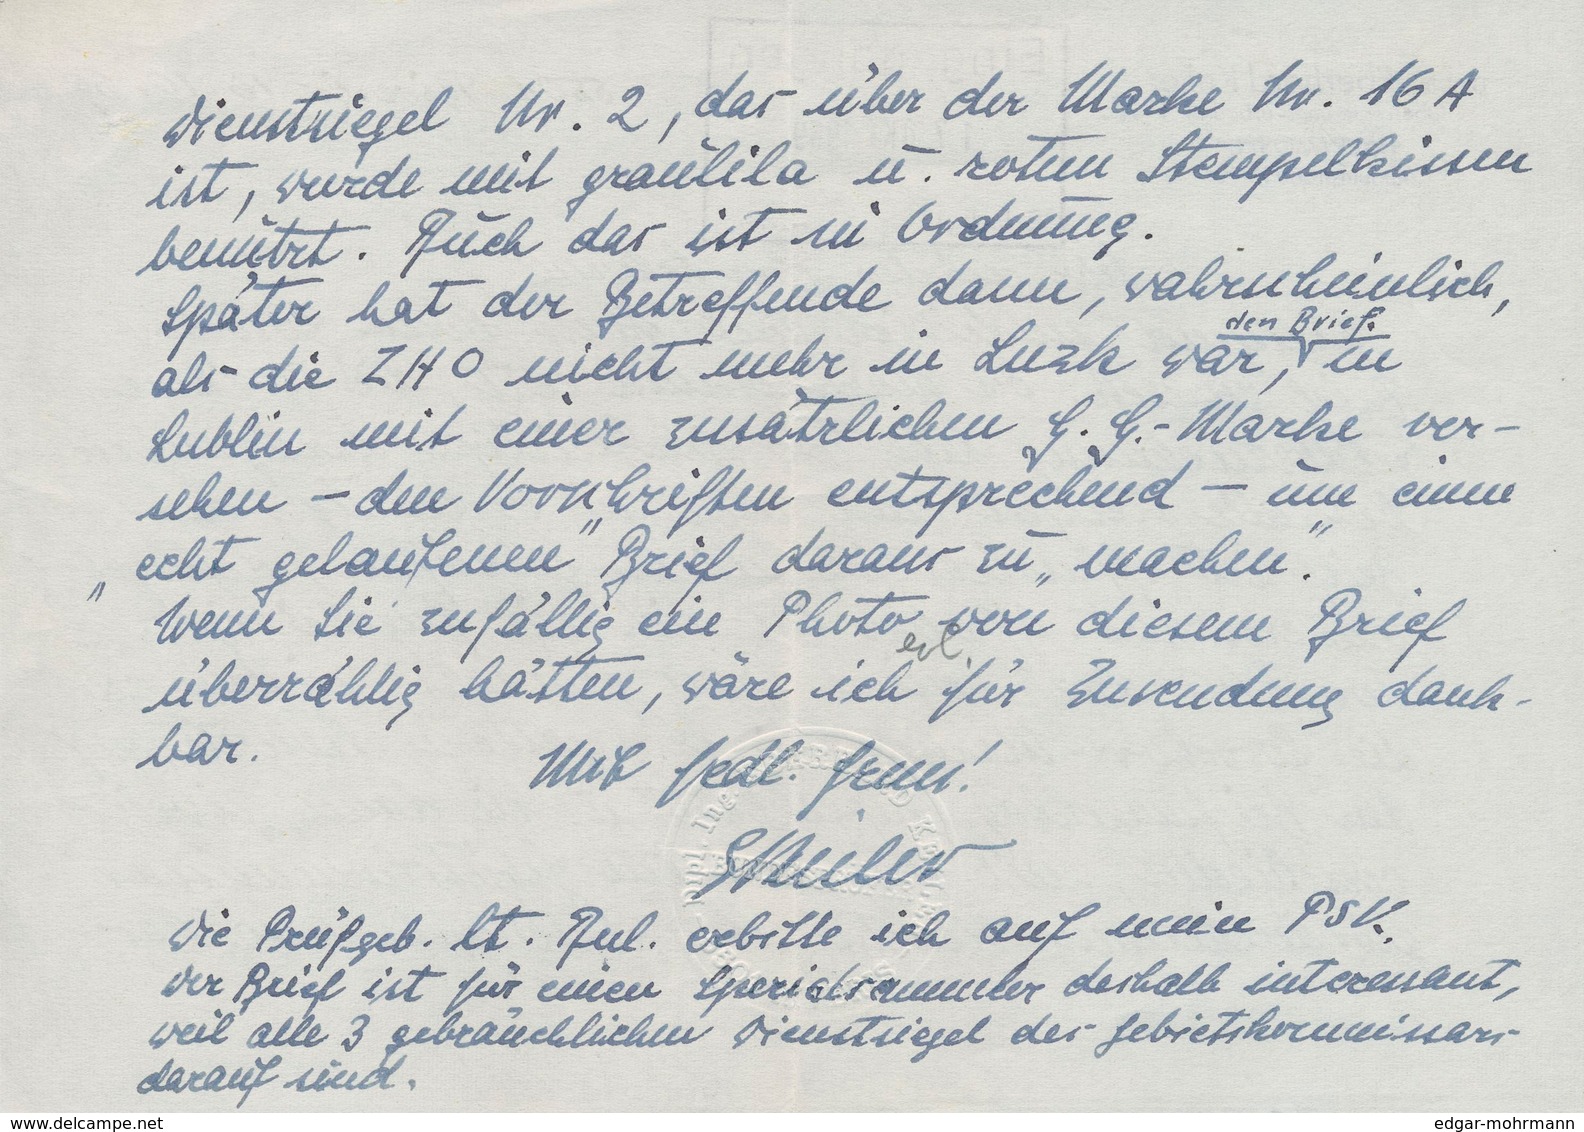 Dienstsiegel Nr. 2, das über der Marke Nr. 16 A
ist, wurde mit graulila u. rotem Stempelkissen
benützt. Auch das ist in Ordnung.
Später hat der Betreffende dann, wahrscheinlich,
den Brief.
als die ZHO nicht mehr in Luzk war, in
Lublin mit einer zusätzlichen G. G.-Marke ver-
sehen – den Vorschriften entsprechend – um einen
„echt gelaufenen" Brief daraus zu „machen".
Wenn Sie zufällig ein Photo von diesem Brief
erl.
überzählig hätten, wäre ich für Zusendung dank-
bar.
Mit frdl. Gruss!
Die Prüfgeb. lt. Anl. erbitte ich auf mein PSK.
Der Brief ist für einen Spezialsammler deshalb interessant,
weil alle 3 gebräuchlichen Dienstsiegel des Gebietskommissars
darauf sind.
delcampe.net
edgar-mohrmann